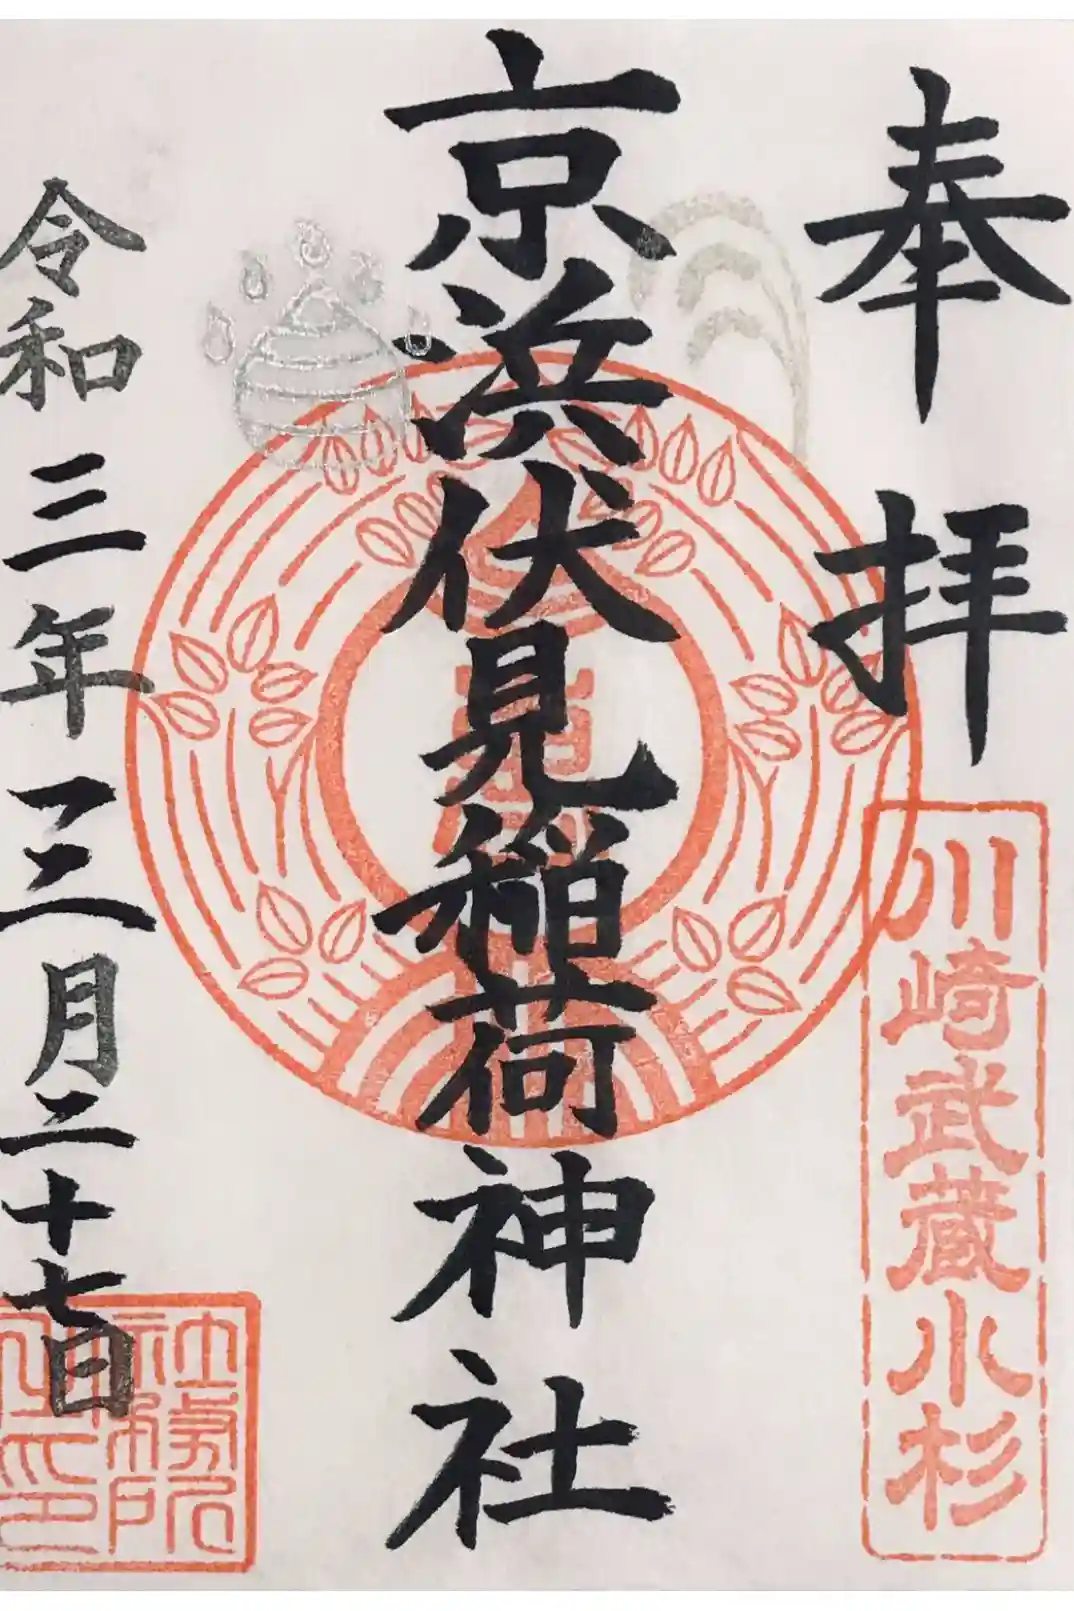 奉拝
川崎武蔵小杉
京浜伏見稲荷神社
令和三年三月二十七日
社務所